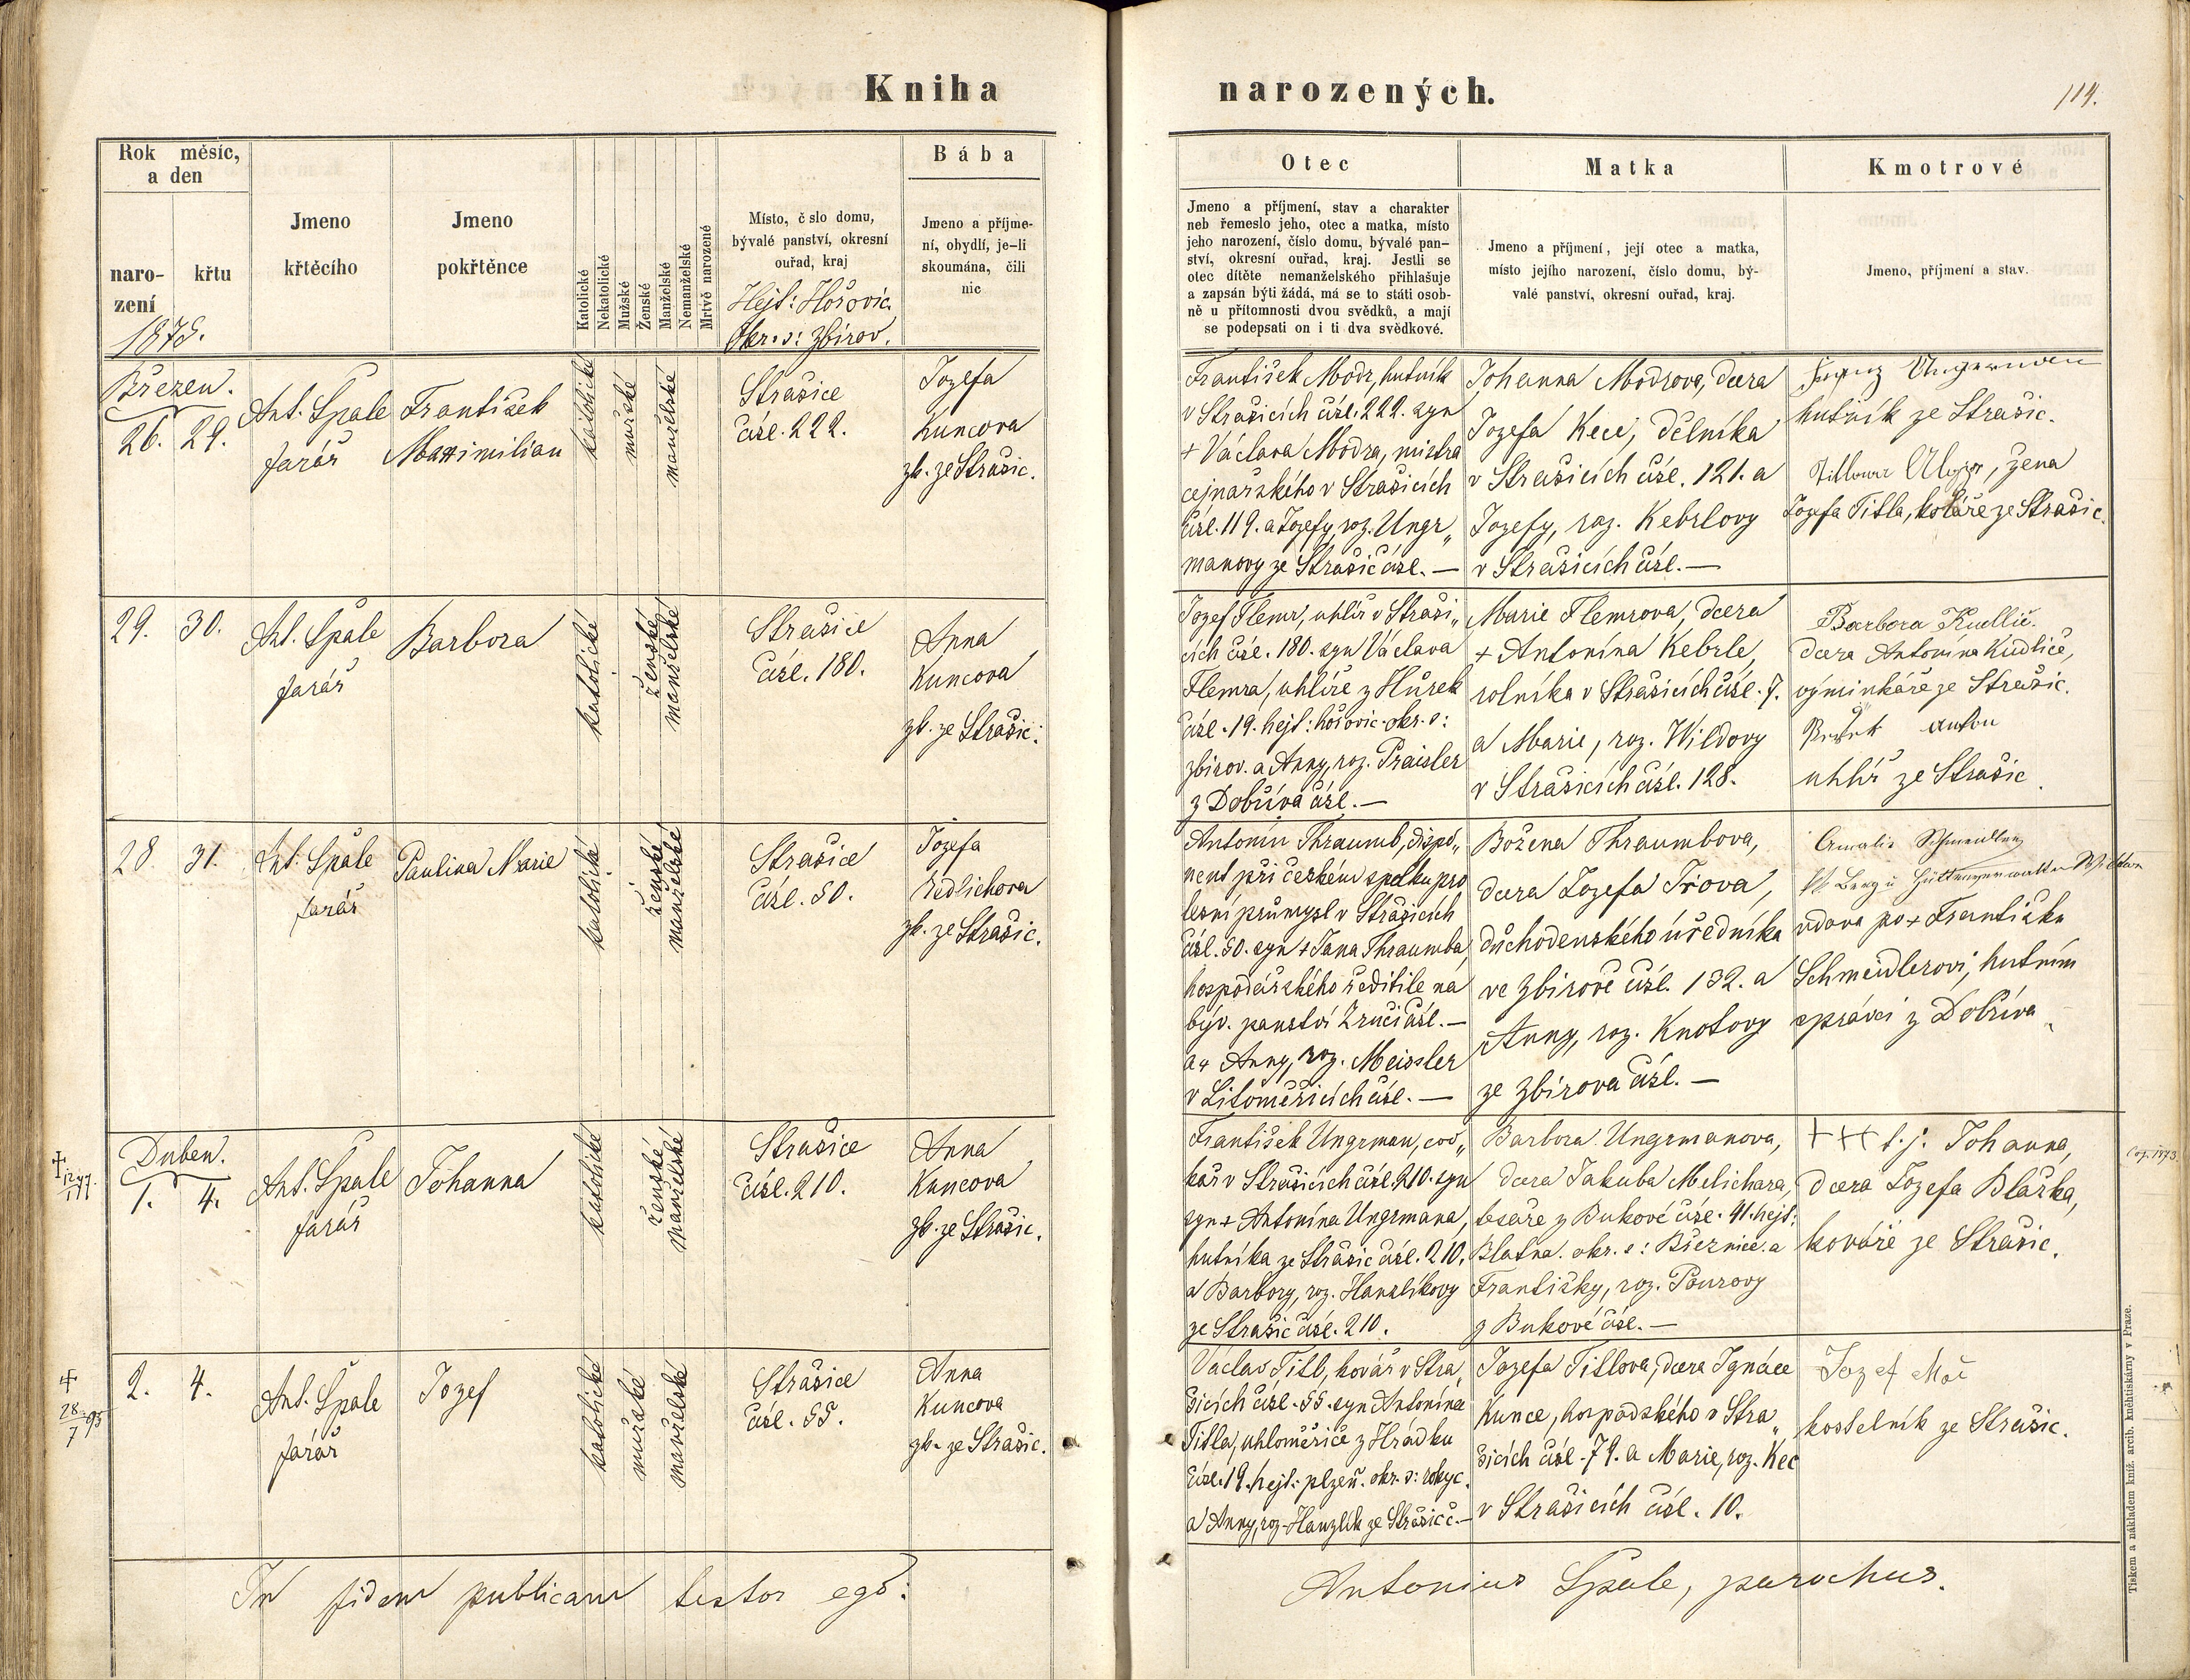 Kniha narozených.
114.
Rok měsíc,
a den
naro-
zení
křtu
1875.
Jmeno
křtěcího
Jmeno
pokřtěnce
Katolické
Nekatolické
Mužské
Ženské
Manželské
Nemanželské
Mrtvě narozené
Místo, č slo domu,
bývalé panství, okresní
ouřad, kraj
Hejt: Hořovic.
Okr. s: Zbirov.
Bába
Jmeno a příjme-
ní, obydlí, je-li
skoumána, čili
nic
Otec
Jmeno a příjmení, stav a charakter
neb řemeslo jeho, otec a matka, místo
jeho narození, číslo domu, bývalé pan-
ství, okresní ouřad, kraj. Jestli se
otec dítěte nemanželského přihlašuje
a zapsán býti žádá, má se to státi osob-
ně u přítomnosti dvou svědků, a mají
se podepsati on i ti dva svědkové.
Matka
Jmeno a příjmení, její otec a matka,
místo jejího narození, číslo domu, bý-
valé panství, okresní ouřad, kraj.
Kmotrové
Jmeno, příjmení a stav.
Březen.
26. 29.
Ant. Špale
farář
František
Maximilian
katolické
mužské
manželské
Strašice
čísl. 222.
Jozefa
Kuncova
zk. ze Strašic.
František Modr, hutník
v Strašicích čísl. 222. syn
+ Václava Modra, mistra
cejnařského v Strašicích
čísl. 119. a Jozefy, roz. Ungr„
manovy ze Strašic čísl. —
Johanna Modrova, dcera
Jozefa Kece, dělníka
v Strašicích čísl. 121. a
Jozefy, roz. Kebrlovy
v Strašicích čísl. —
Franz
hutník ze Strašic.
žena
Jozefa Titla, koláře ze Strašic.
29. 30.
Ant. Špale
farář
Barbora
katolické
ženské
manželské
Strašice
čísl. 180.
Anna
Kuncova
zk. ze Strašic.
Jozef Flemr, uhlíř v Straši„
cích čísl. 180. syn Václava
Flemra, uhlíře z Hůrek
čísl. 19. hejt: hořovic. okr. s:
zbirov. a Anny, roz. Praisler
z Dobříva čísl. —
Marie Flemrova, dcera
+ Antonína Kebrle,
rolníka v Strašicích čísl. 7.
a Marie, roz. Wildovy
v Strašicích čísl. 128.
Barbora Kudlič.
dcera Antonína Kudliče,
výminkáře ze Strašic.
Anton
uhlíř ze Strašic.
28. 31.
Ant. Špale
farář
Paulina Marie
katolické
ženské
manželské
Strašice
čísl. 50.
Jozefa
Ředlichova
zk. ze Strašic.
Antonín Thraumb, dispo„
nent při českém spolku pro
lesní průmysl v Strašicích
čísl. 50. syn + Jana Thraumba,
hospodářského ředitile na
býv. panství Zruči čísl. —
a + Anny, roz. Meissler
v Litoměřicích čísl. —
Božena Thraumbova,
dcera Jozefa Trova,
důchodenského úředníka
ve Zbirově čísl. 132. a
Anny, roz. Knotovy
ze Zbirova čísl. —
Amalie Schmeidler
Berg u Hüttenverwalters Witwe
vdova po + Františku
Schmeidlerovi, hutním
správci z Dobříva
Duben.
1. 4.
Ant. Špale
farář
Johanna
katolické
ženské
manželské
Strašice
čísl. 210.
Anna
Kuncova
zk. ze Strašic.
František Ungrman, cvo„
kař v Strašicích čísl. 210. syn
syn + Antonína Ungrmana,
hutníka ze Strašic čísl. 210.
a Barbory, roz. Hanzlíkovy
ze Strašic čísl. 210.
Barbora Ungrmanova,
dcera Jakuba Melichara,
tesaře z Bukové čísl. 41. hejt:
Blatna. okr. s: Březnice. a
Františky, roz. Pourovy
z Bukové čísl. —
+++ t. j. Johanna,
dcera Jozefa Blaška,
kováře ze Strašic.
+ 28/7 95
2. 4.
Ant. Špale
farář
Jozef
katolické
mužské
manželské
Strašice
čísl. 55.
Anna
Kuncova
zk. ze Strašic.
Václav Titl, kovář v Stra„
šicích čísl. 55. syn Antonína
Titla, uhloměřiče z Hrádku
čísl. 19. hejt: plzeň. okr. s: rokyc.
a Anny, roz. Hanzlík ze Strašic č. —
Jozefa Titlova, dcera Ignáce
Kunce, hospodského v Stra„
šicích čísl. 79. a Marie, roz. Kec
v Strašicích čísl. 10.
Jozef Moč
kostelník ze Strašic.
In fidem publicam testor ego:
Antonius Špale, parochus.
Tiskem a nákladem kníž. arcib. knihtiskárny v Praze.